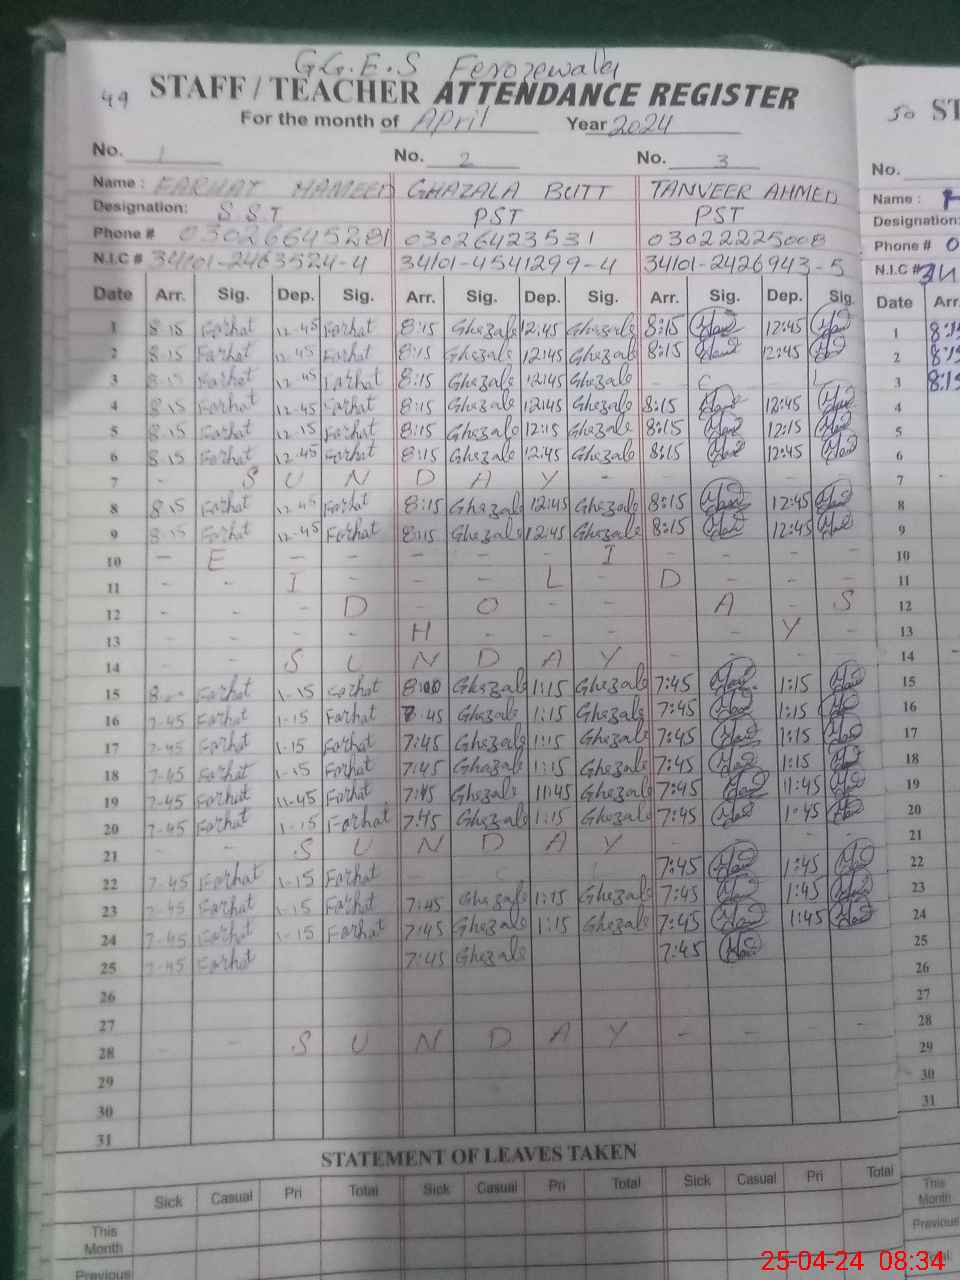 G.G.E.S Ferozewala
49 STAFF / TEACHER ATTENDANCE REGISTER 50 ST
For the month of April Year 2024
No. 1 No. 2 No. 3 No.
Name : FARHAT HAMEED GHAZALA BUTT TANVEER AHMED Name :
Designation: S.S.T PST PST Designation:
Phone # 03026645281 03026423531 03022225008 Phone # 0
N.I.C # 34101-2463524-4 34101-4541299-4 34101-2426943-5 N.I.C # 34
Date Arr. Sig. Dep. Sig. Arr. Sig. Dep. Sig. Arr. Sig. Dep. Sig. Date Arr.
1 8.15 Farhat 12-45 Farhat 8:15 Ghazala 12:45 Ghazala 8:15 12:45 1 8:15
2 8.15 Farhat 12-45 Farhat 8:15 Ghazala 12:45 Ghazala 8:15 12:45 2 8:15
3 8.15 Farhat 12-45 Farhat 8:15 Ghazala 12:45 Ghazala - C - L 3 8:15
4 8.15 Farhat 12-45 Farhat 8:15 Ghazala 12:45 Ghazala 8:15 12:45 4
5 8.15 Farhat 12-15 Farhat 8:15 Ghazala 12:15 Ghazala 8:15 12:15 5
6 8.15 Farhat 12-45 Farhat 8:15 Ghazala 12:45 Ghazala 8:15 12:45 6
7 - S U N D A Y - - - - - 7
8 8.15 Farhat 12-45 Farhat 8:15 Ghazala 12:45 Ghazala 8:15 12:45 8
9 8.15 Farhat 12-45 Farhat 8:15 Ghazala 12:45 Ghazala 8:15 12:45 9
10 - E - - - - - I - - - - 10
11 - - I - - - L - D - - - 11
12 - - - D - O - - - A - S 12
13 - - - - H - - - - - Y - 13
14 - - S U N D A Y - - - - 14
15 8.00 Farhat 1-15 Farhat 8:00 Ghazala 1:15 Ghazala 7:45 1:15 15
16 7-45 Farhat 1-15 Farhat 7:45 Ghazala 1:15 Ghazala 7:45 1:15 16
17 7-45 Farhat 1-15 Farhat 7:45 Ghazala 1:15 Ghazala 7:45 1:15 17
18 7-45 Farhat 1-15 Farhat 7:45 Ghazala 1:15 Ghazala 7:45 1:15 18
19 7-45 Farhat 11-45 Farhat 7:45 Ghazala 11:45 Ghazala 7:45 11:45 19
20 7-45 Farhat 1-15 Farhat 7:45 Ghazala 1:15 Ghazala 7:45 1:45 20
21 - - S U N D A Y - - - - 21
22 7-45 Farhat 1-15 Farhat - C - L 7:45 1:45 22
23 7-45 Farhat 1-15 Farhat 7:45 Ghazala 1:15 Ghazala 7:45 1:45 23
24 7-45 Farhat 1-15 Farhat 7:45 Ghazala 1:15 Ghazala 7:45 1:45 24
25 7-45 Farhat 7:45 Ghazala 7:45 25
26 26
27 27
28 - - S U N D A Y - - - - 28
29 29
30 30
31 31
STATEMENT OF LEAVES TAKEN
Sick Casual Pri Total Sick Casual Pri Total Sick Casual Pri Total
This Month This Month
Previous Previous
25-04-24 08:34